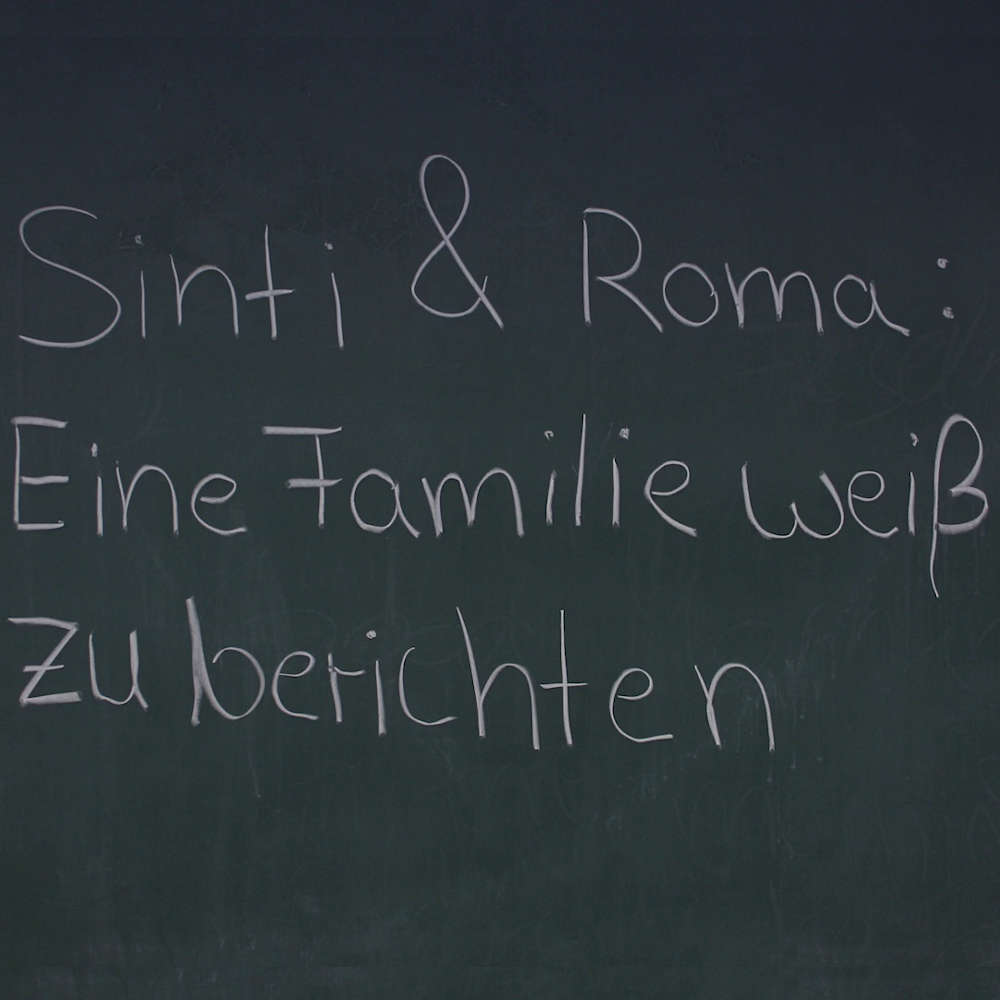 Sinti & Roma:
Eine Familie weiß
zu berichten